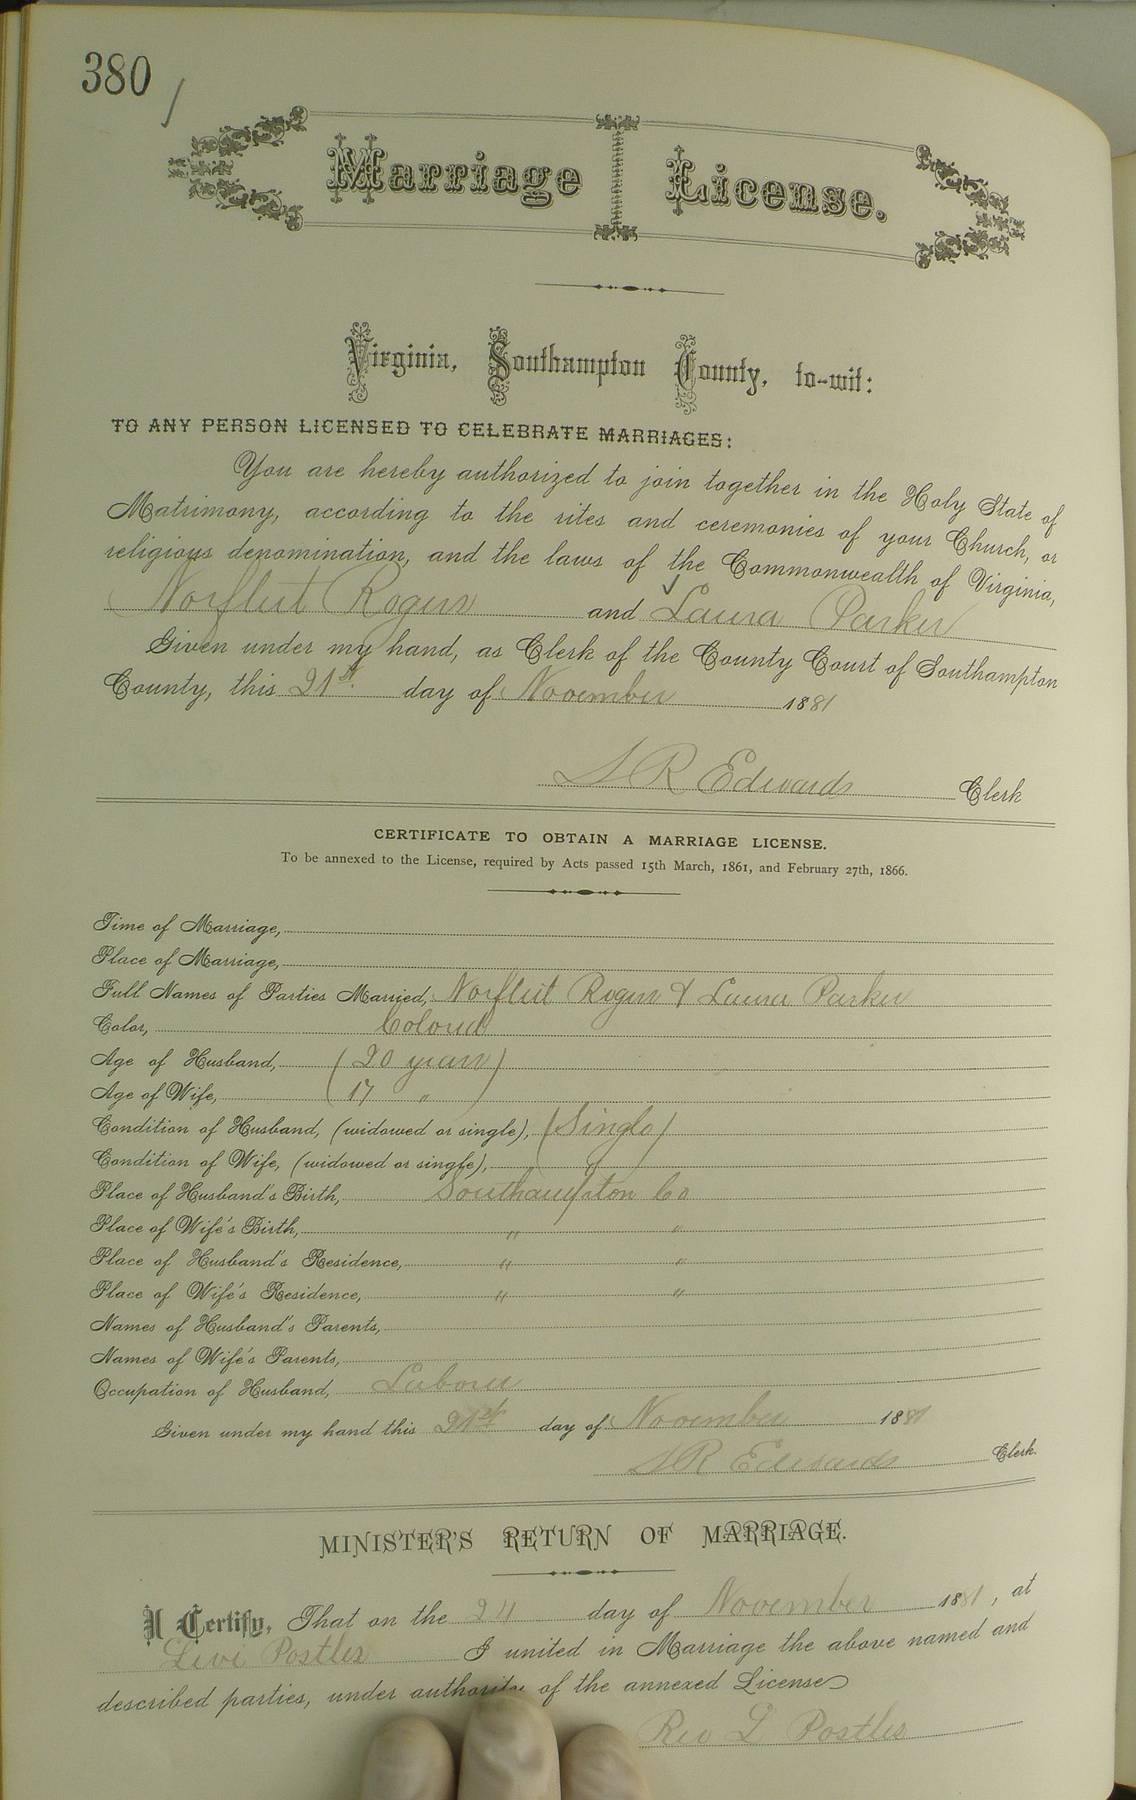 380
Marriage License.
Virginia, Southampton County, to-wit:
TO ANY PERSON LICENSED TO CELEBRATE MARRIAGES:
You are hereby authorized to join together in the Holy State of
Matrimony, according to the rites and ceremonies of your Church, or
religious denomination, and the laws of the Commonwealth of Virginia,
Norfleet Rogers and Laura Parker
Given under my hand, as Clerk of the County Court of Southampton
County, this 21st day of November 1881
L R Edwards Clerk
CERTIFICATE TO OBTAIN A MARRIAGE LICENSE.
To be annexed to the License, required by Acts passed 15th March, 1861, and February 27th, 1866.
Time of Marriage,
Place of Marriage,
Full Names of Parties Married, Norfleet Rogers & Laura Parker
Color, Colored
Age of Husband, (20 years)
Age of Wife, (17 " )
Condition of Husband, (widowed or single), (Single)
Condition of Wife, (widowed or single), "
Place of Husband's Birth, Southampton Co
Place of Wife's Birth, " "
Place of Husband's Residence, " "
Place of Wife's Residence, " "
Names of Husband's Parents,
Names of Wife's Parents,
Occupation of Husband, Laborer
Given under my hand this 21st day of November 1881
L R Edwards Clerk.
MINISTER'S RETURN OF MARRIAGE.
I Certify, That on the 24 day of November 1881, at
Levi Postles I united in Marriage the above named and
described parties, under authority of the annexed License
Rev L Postles